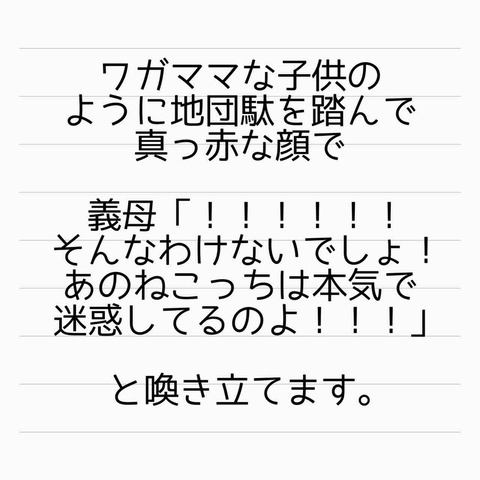 ワガママな子供の
ように地団駄を踏んで
真っ赤な顔で
義母「！！！！！！
そんなわけないでしょ！
あのねこっちは本気で
迷惑してるのよ！！！」
と喚き立てます。